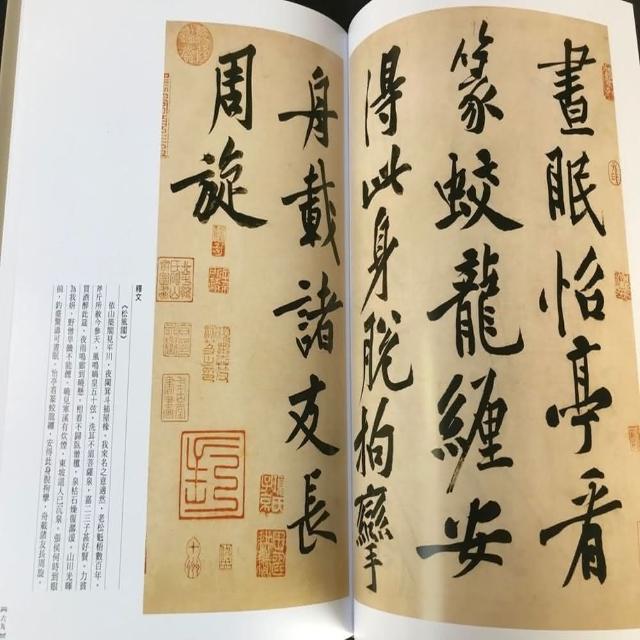 晝眠怡亭看
篆蛟龍纏安
得此身脫拘攣
舟載諸友長
周旋
釋文
《松風閣》
依山築閣見平川，夜闌箕斗插屋椽，我來名之意適然。老松魁梧數百年，
斧斤所赦今參天。風鳴媧皇五十弦，洗耳不須菩薩泉。嘉二三子甚好賢，力貧
買酒醉此筵。夜雨鳴廊到曉懸，相看不歸臥僧氈。泉枯石燥復潺湲，山川光暉
為我妍。野僧早饑不能饘，曉見寒溪有炊煙。東坡道人已沉泉，張侯何時到眼
前。釣臺驚濤可晝眠，怡亭看篆蛟龍纏。安得此身脫拘攣，舟載諸友長周旋。